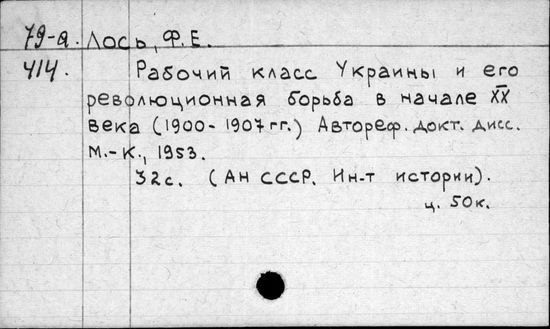 79-а. Лось, Ф.Е.
414. Рабочий класс Украины и его
революционная борьба в начале XX
века (1900-1907 гг.) Автореф. докт. дисс.
М.-К., 1953.
32с. (АН СССР. Ин-т истории).
ц. 50к.